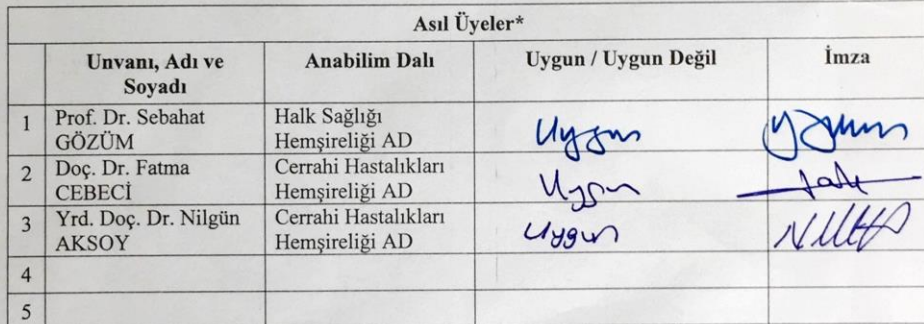 Asıl Üyeler*
Unvanı, Adı ve Soyadı Anabilim Dalı Uygun / Uygun Değil İmza
1 Prof. Dr. Sebahat GÖZÜM Halk Sağlığı Hemşireliği AD Uygun
2 Doç. Dr. Fatma CEBECİ Cerrahi Hastalıkları Hemşireliği AD Uygun
3 Yrd. Doç. Dr. Nilgün AKSOY Cerrahi Hastalıkları Hemşireliği AD Uygun
4
5